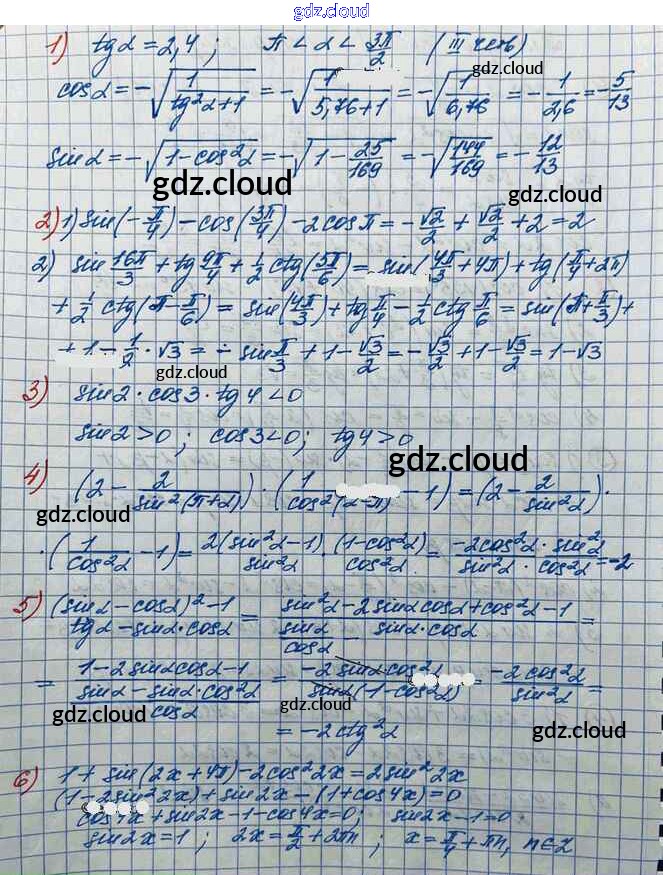 gdz.cloud
1) tgα = 2,4 ; π < α < 3π/2 (III четв)
gdz.cloud
cosα = -√(1/(tg²α+1)) = -√(1/(5,76+1)) = -√(1/6,76) = -1/2,6 = -5/13
sinα = -√(1-cos²α) = -√(1-25/169) = -√(144/169) = -12/13
gdz.cloud
gdz.cloud
2) 1) sin(-π/4) - cos(3π/4) - 2cosπ = -√2/2 + √2/2 + 2 = 2
2) sin 16π/3 + tg 9π/4 + 1/2 ctg(5π/6) = sin(4π/3 + 4π) + tg(π/4 + 2π)
+ 1/2 ctg(π - π/6) = sin(4π/3) + tg π/4 - 1/2 ctg π/6 = sin(π + π/3) +
+ 1 - 1/2 · √3 = - sin π/3 + 1 - √3/2 = -√3/2 + 1 - √3/2 = 1 - √3
gdz.cloud
3) sin2 · cos3 · tg4 < 0
sin2 > 0 ; cos3 < 0 ; tg4 > 0
gdz.cloud
4) (2 - 2/sin²(π+α)) · (1/cos²(α-π) - 1) = (2 - 2/sin²α) ·
gdz.cloud
gdz.cloud
· (1/cos²α - 1) = 2(sin²α-1)/sin²α · (1-cos²α)/cos²α = -2cos²α · sin²α/sin²α · cos²α = -2
5) (sinα - cosα)² - 1/tgα - sinα·cosα = sin²α - 2sinαcosα + cos²α - 1/sinα/cosα - sinα·cosα =
= 1 - 2sinαcosα - 1/sinα - sinα·cos²α/cosα = -2sinαcos²α/sinα(1-cos²α) = -2cos²α/sin²α =
gdz.cloud
gdz.cloud
= -2ctg²α
gdz.cloud
6) 1 + sin(2x+4π) - 2cos²2x = 2sin²2x
(1 - 2sin²2x) + sin2x - (1+cos4x) = 0
cos4x + sin2x - 1 - cos4x = 0 ; sin2x - 1 = 0
gdz.cloud
sin2x = 1 ; 2x = π/2 + 2πn ; x = π/4 + πn, n∈Z
gdz.cloud